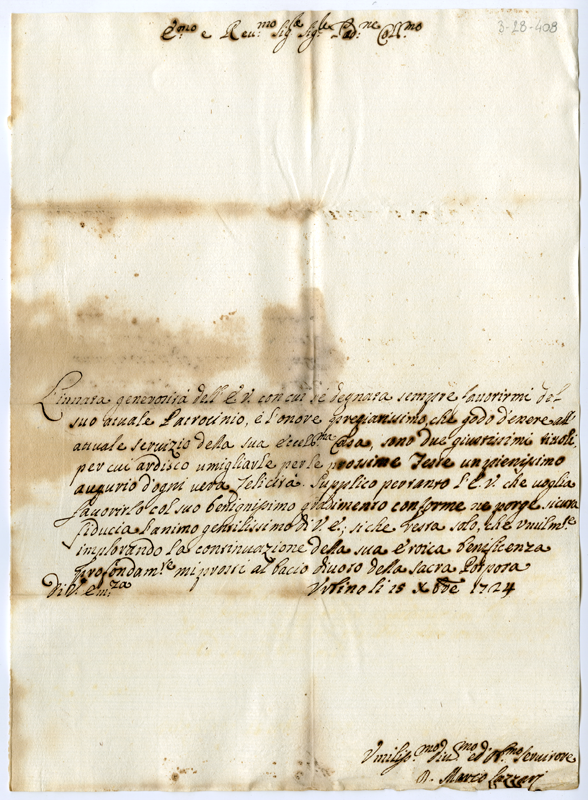 E.mo e Reu.mo Sig.re Sig.re Pad.ne Coll.mo
3-28-408
L'innata generosità dell'E.V. con cui s'è degnata sempre favorirmi del
suo attuale Patrocinio, e l'onore pregiatissimo, che godo d'essere all'
attuale servizio della sua Eccell.ma Casa, sono due giustissimi titoli,
per cui ardisco umigliarle per le prossime Feste un pienissimo
augurio d'ogni vera Felicità. Supplico pertanto l'E.V. che voglia
favorirlo col suo benignissimo gradimento conforme ne porge sicura
fiducia l'animo gentilissimo di V.E.; si che resta solo, che vmilm.te
implorando la continuazione della sua eroica beneficenza
profondam.te mi prostri al bacio diuoto della Sacra Porpora
di V. Em.za Vrbino li 15 Xbre 1724
Vmiliss.mo diu.mo ed Obl.mo Seruitore
D. Marco Lazzari